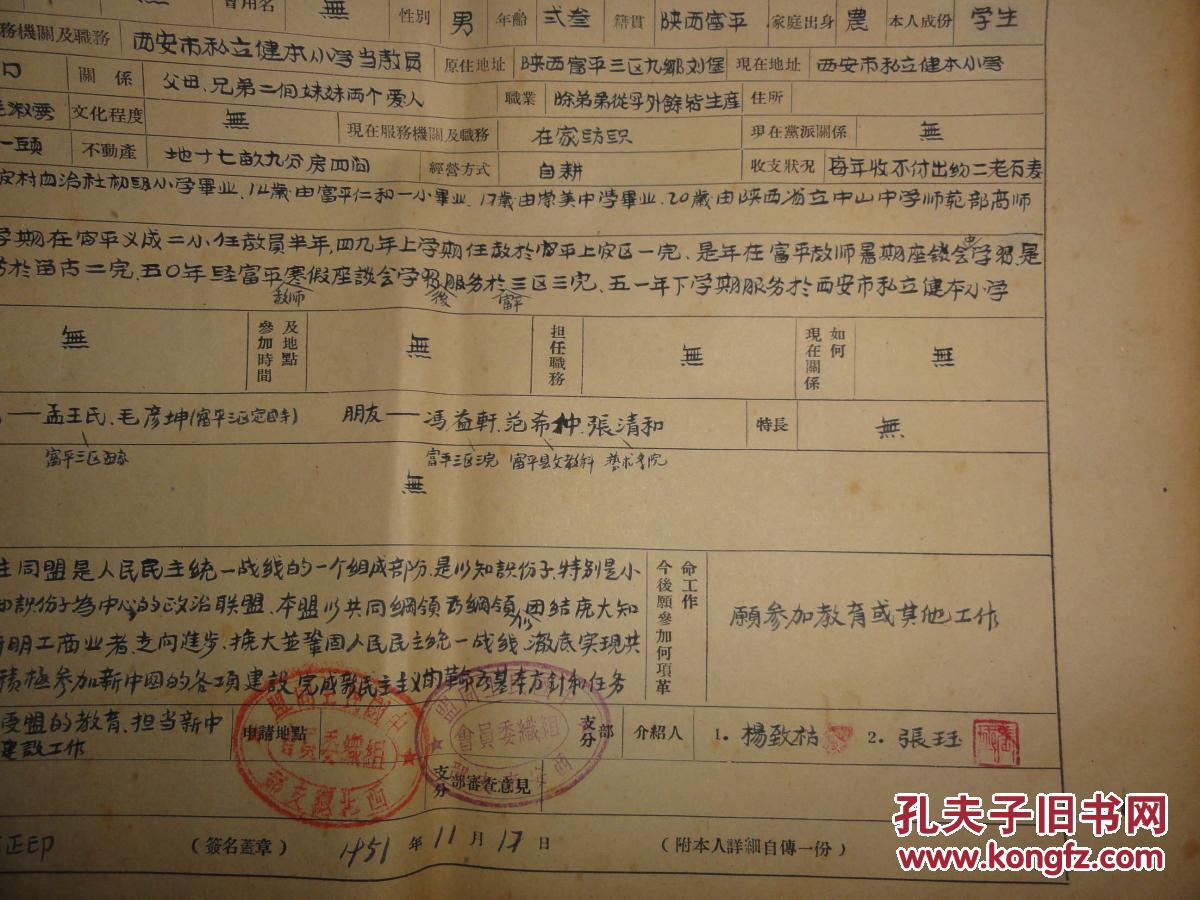 無 曾用名 無 性別 男 年齡 弍叁 籍貫 陝西富平 家庭出身 農 本人成份 学生
務機關及職務 西安市私立健本小学当教員 原住地址 陝西富平三区九鄉刘堡 現在地址 西安市私立健本小学
口 關係 父母、兄弟二個妹妹两个爱人 職業 除弟弟從学外餘皆生産 住所
淑雲 文化程度 無 現在服務機關及職務 在家纺织 現在黨派關係 無
一頭 不動產 地十七畝九分房四间 經營方式 自耕 收支狀況 每年收不付出约二老石麦
村自治社初級小学畢业、14歲由富平仁和一小畢业、17歲由崇美中學畢业、20歲由陝西省立中山中学师范部高师
学期在富平义成二小任教員半年,四九年上学期任教於富平上安区一完、是年在富平教师暑期座談会学習,是
於留古二完、五〇年經富平教师寒假座談会学習後服务於富平三区三完、五一年下学期服务於西安市私立健本小学
無 參加時間及地點 無 担任職務 無 現在關係如何 無
孟王民、毛彦坤(富平三区定国寺) 朋友——馮益軒、范希仲、張清和 特長 無
富平三区 富平三区三完 富平县文教科 藝术学院
無
主同盟是人民民主統一战线的一个组成部份,是以知識份子、特别是小
知識份子為中心的政治联盟、本盟以共同綱領為綱領,团结廣大知
明工商业者,走向進步、擴大並鞏固人民民主統一战线、澈底实現共
積極参加新中国的各項建設,完成新民主主义的革命為基本方針和任务
今後願參加何項革命工作
願参加教育或其他工作
受盟的教育、担当新中
建設工作
申請地點
支分部 介紹人 1. 楊致祜 2. 張珏
組織委員會
西北總支部
組織委員會
支分部審查意見
正印 (簽名蓋章) 1951年11月17日 (附本人詳細自傳一份)
孔夫子旧书网
www.kongfz.com